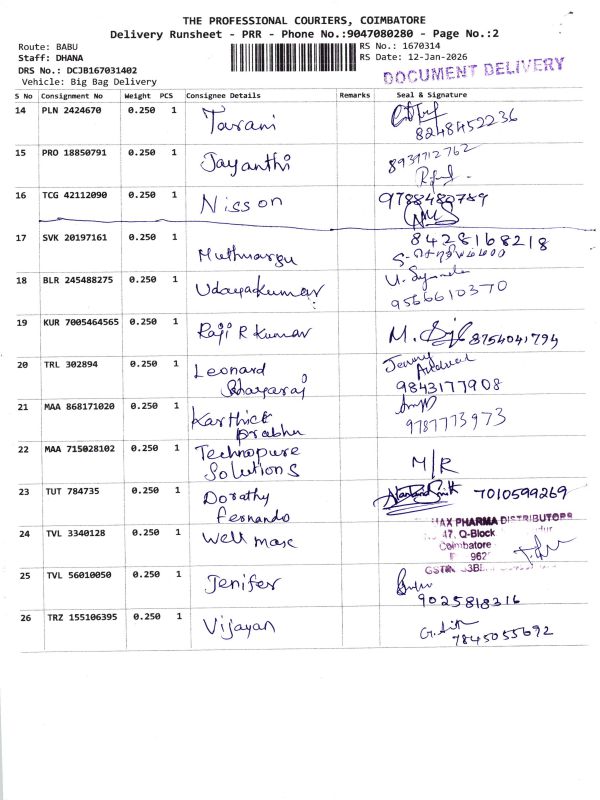 THE PROFESSIONAL COURIERS, COIMBATORE
Delivery Runsheet - PRR - Phone No.:9047080280 - Page No.:2
Route: BABU
RS No.: 1670314
Staff: DHANA
RS Date: 12-Jan-2026
DRS No.: DCJB167031402
DOCUMENT DELIVERY
Vehicle: Big Bag Delivery
S No Consignment No Weight PCS Consignee Details Remarks Seal & Signature
14 PLN 2424670 0.250 1 Tarani
8248452236
15 PRO 18850791 0.250 1 Jayanthi 8931712762
16 TCG 42112090 0.250 1 Nisson 9788480789
17 SVK 20197161 0.250 1 8428168218
Muthuargu
18 BLR 245488275 0.250 1 Udayakumar
9566610370
19 KUR 7005464565 0.250 1 Raji R Kumar M. 8754041794
20 TRL 302894 0.250 1 Leonard
9843177908
21 MAA 868171020 0.250 1 Karthick
Prabhu 9787773973
22 MAA 715028102 0.250 1 Technopure
Solutions M/R
23 TUT 784735 0.250 1 Dorathy 7010599269
Fernando
24 TVL 3340128 0.250 1 Well max
MAX PHARMA DISTRIBUTORS
47, Q-Block
Coimbatore
962
GSTIN
25 TVL 56010050 0.250 1 Jenifer
9025818316
26 TRZ 155106395 0.250 1 Vijayan
7845055692